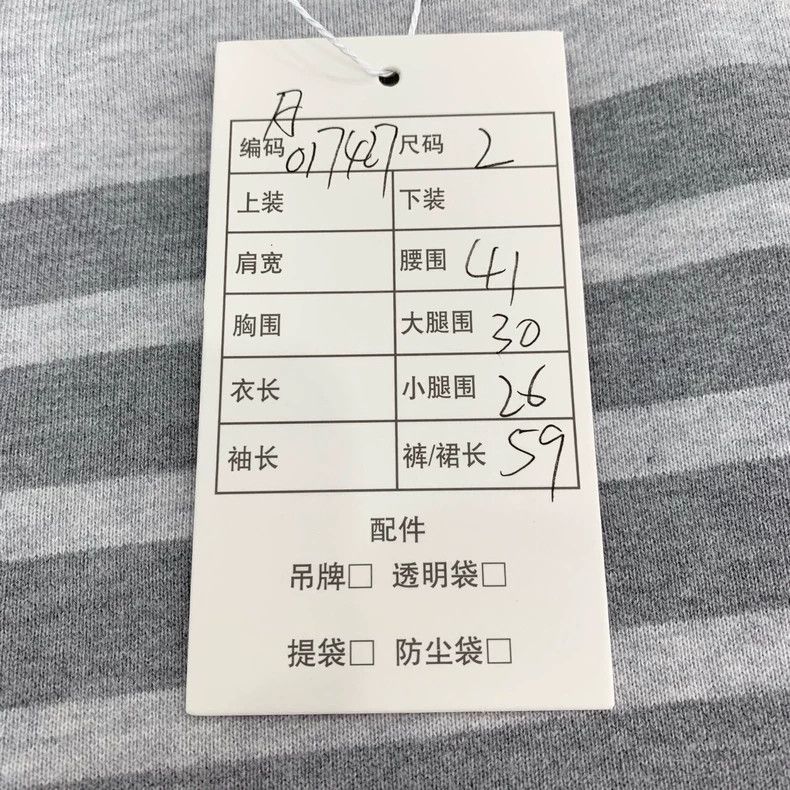 A
编码 017427 尺码 2
上装 下装
肩宽 腰围 41
胸围 大腿围 30
衣长 小腿围 26
袖长 裤/裙长 59
配件
吊牌□ 透明袋□
提袋□ 防尘袋□